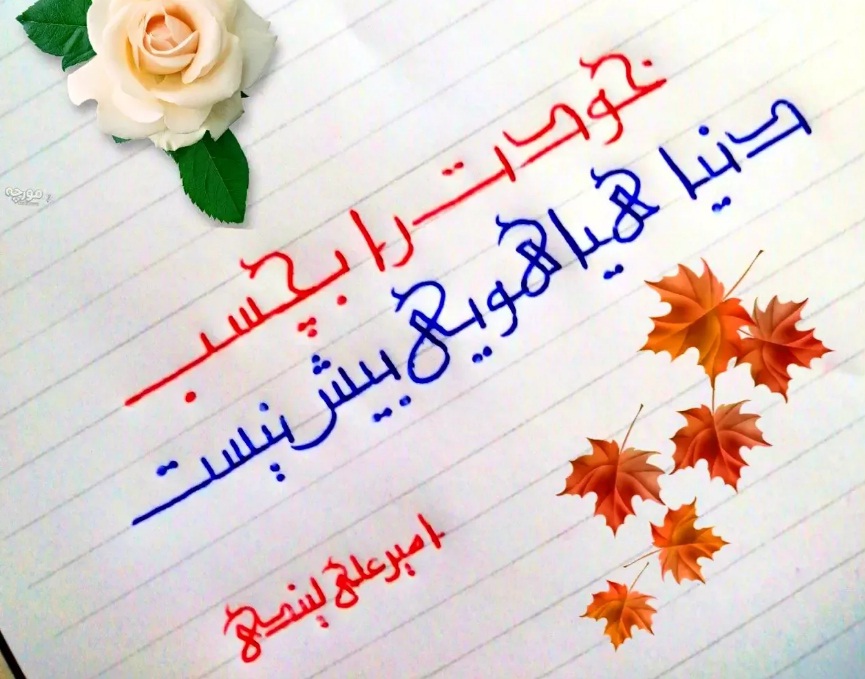 خودت را بچسب
دنیا هیاهویی بیش نیست
امیرعلی
مورچه